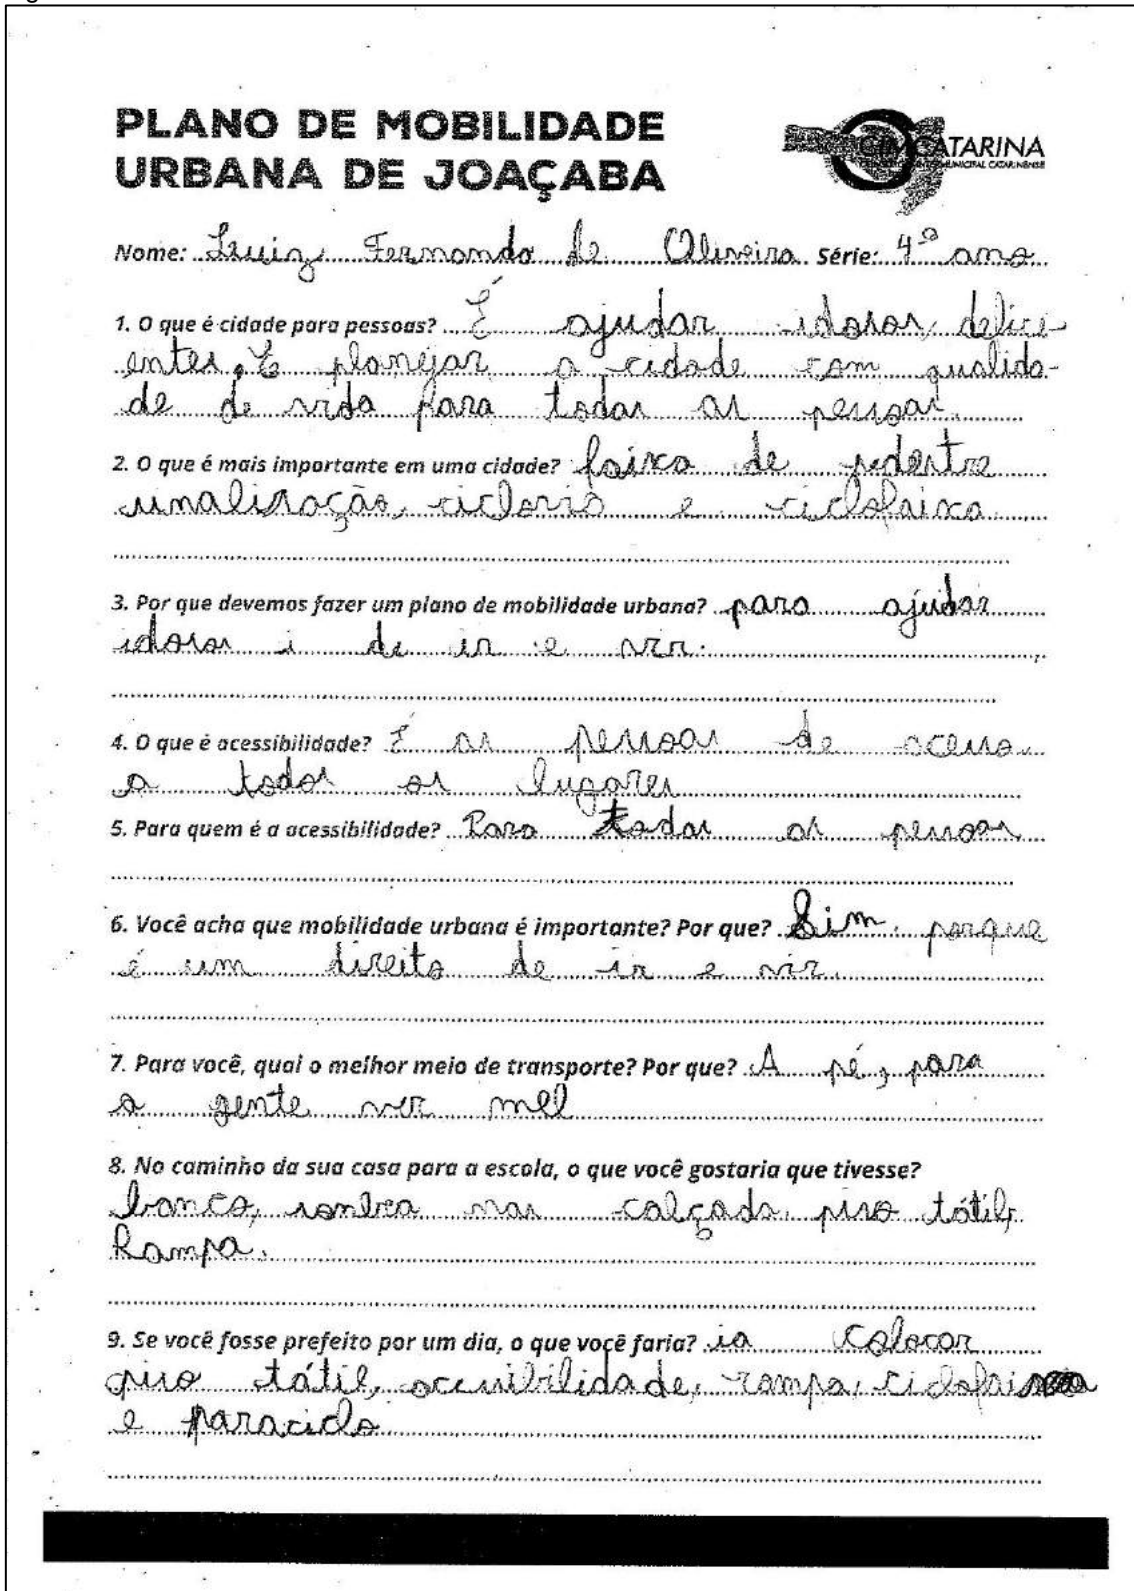 PLANO DE MOBILIDADE
URBANA DE JOAÇABA
CIMCATARINA
Nome: Luiz Fernando de Oliveira Série: 4º ano
1. O que é cidade para pessoas? É ajudar idosos, defici-
entes, E planejar a cidade com qualida-
de de vida para todas as pessoas.
2. O que é mais importante em uma cidade? faixa de pedestre
sinalização, ciclovia e ciclofaixa.
3. Por que devemos fazer um plano de mobilidade urbana? para ajudar
idosos i de ir e vir.
4. O que é acessibilidade? É as pessoas de acesso
a todos os lugares
5. Para quem é a acessibilidade? Para todas as pessoas
6. Você acha que mobilidade urbana é importante? Por que? Sim, porque
é um direito de ir e vir.
7. Para você, qual o melhor meio de transporte? Por que? A pé, para
a gente ver mel
8. No caminho da sua casa para a escola, o que você gostaria que tivesse?
banco, sombra nas calçada, piso tátil,
Rampa.
9. Se você fosse prefeito por um dia, o que você faria? ia colocar
piso tátil, acessibilidade, rampa, ciclofaixa
e paraciclo